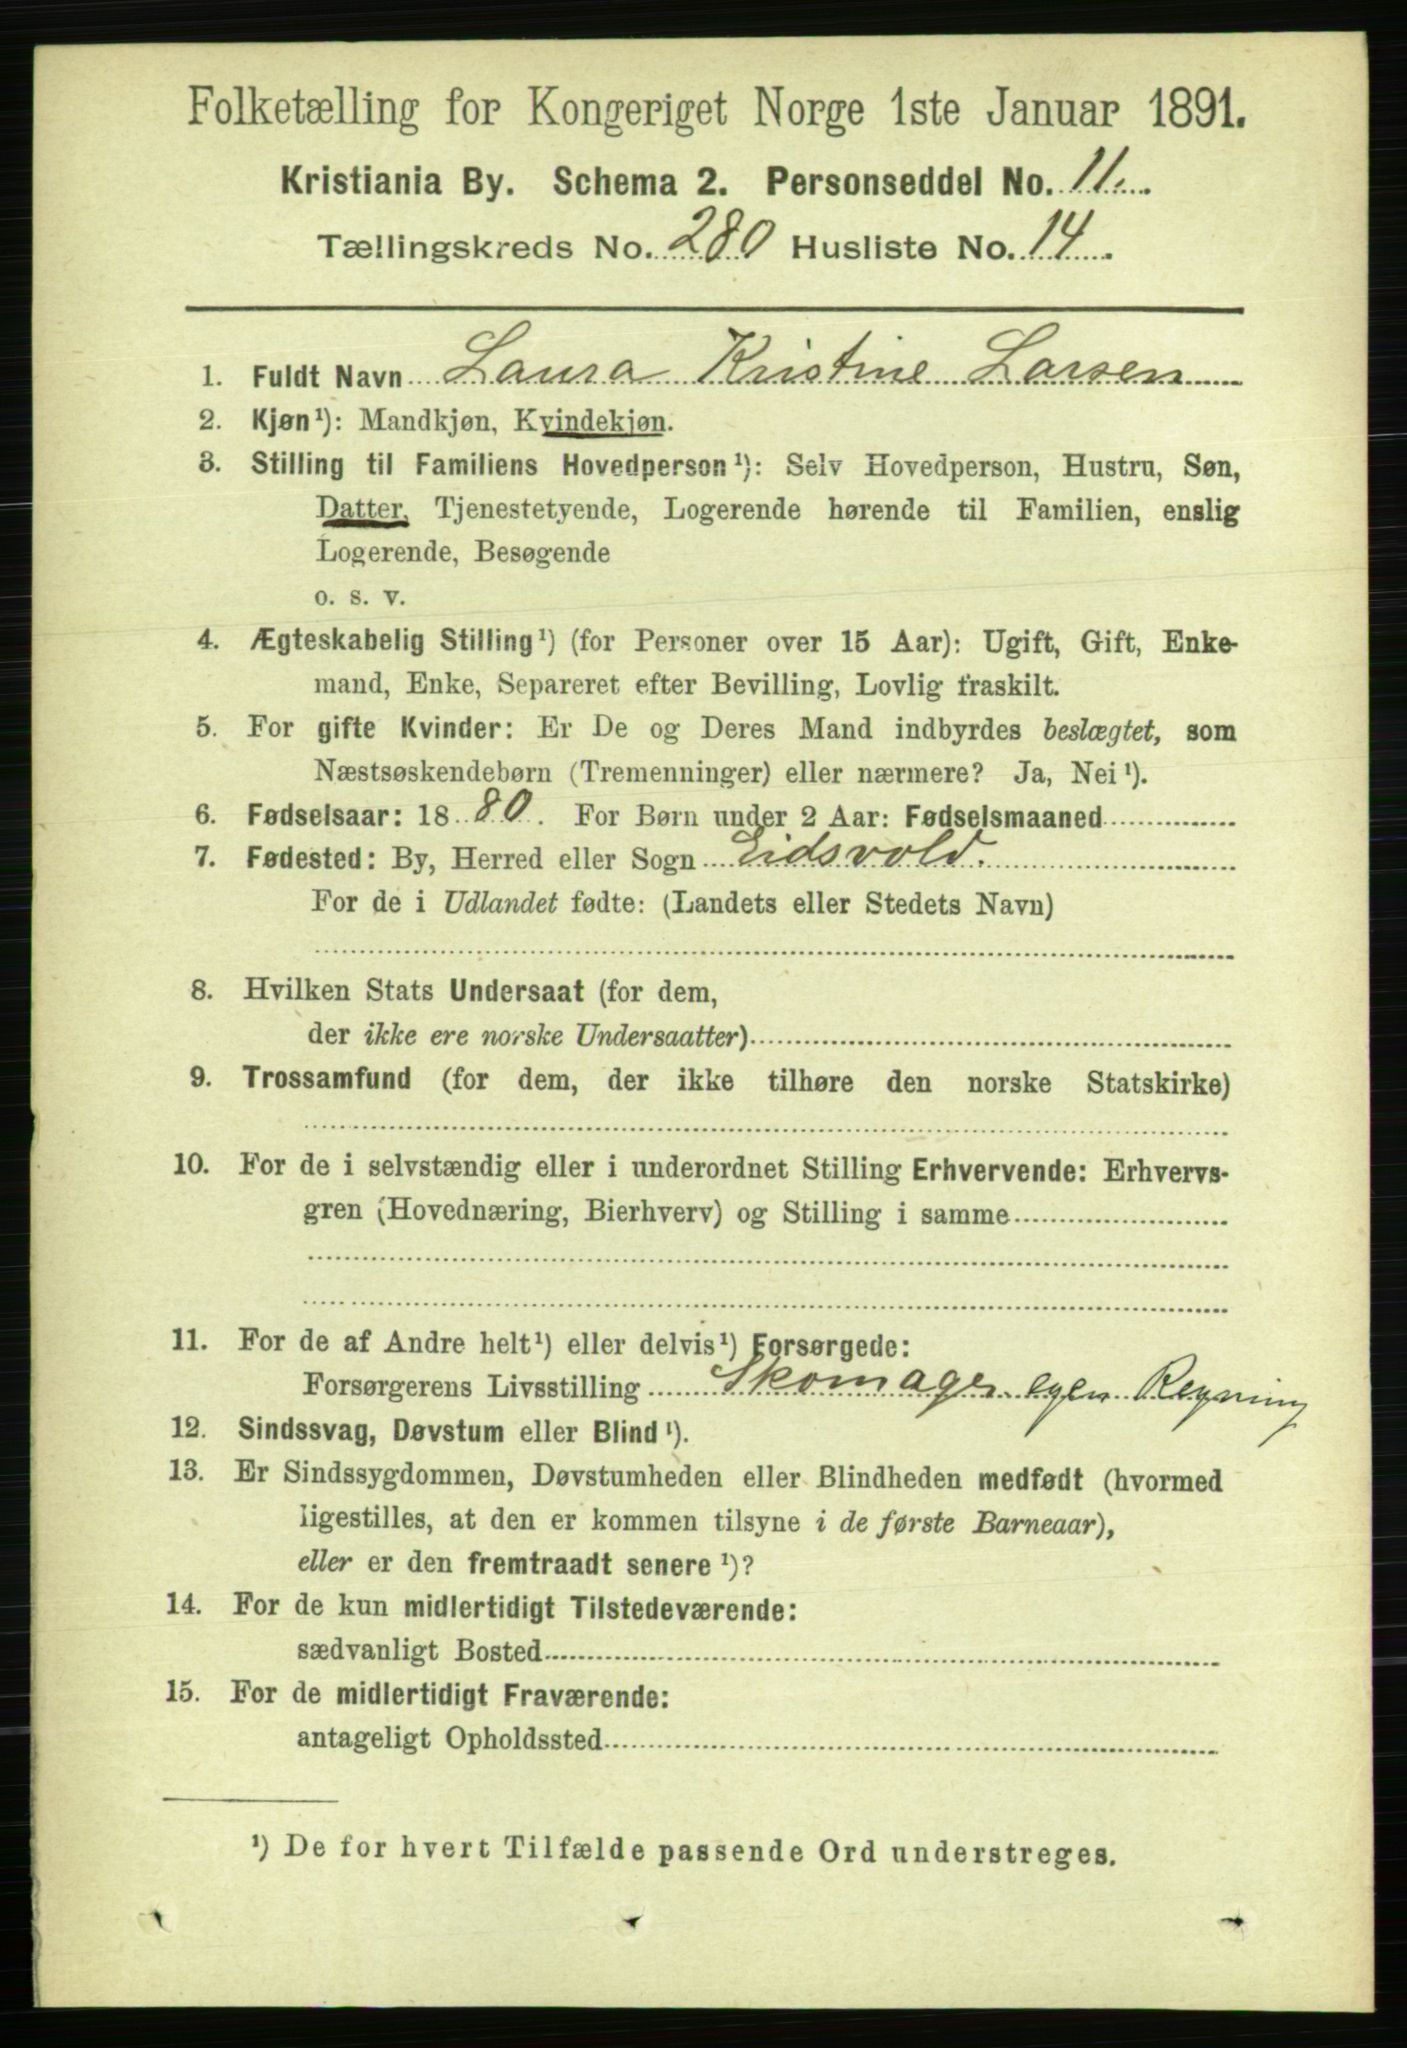 Folketælling for Kongeriget Norge 1ste Januar 1891.
Kristiania By. Schema 2. Personseddel No. 11.
Tællingskreds No. 280 Husliste No. 14.
1. Fuldt Navn Laura Kristine Larsen
2. Kjøn¹): Mandkjøn, Kvindekjøn.
3. Stilling til Familiens Hovedperson¹): Selv Hovedperson, Hustru, Søn,
Datter, Tjenestetyende, Logerende hørende til Familien, enslig
Logerende, Besøgende
o. s. v.
4. Ægteskabelig Stilling¹) (for Personer over 15 Aar): Ugift, Gift, Enke-
mand, Enke, Separeret efter Bevilling, Lovlig fraskilt.
5. For gifte Kvinder: Er De og Deres Mand indbyrdes beslægtet, som
Næstsøskendebørn (Tremenninger) eller nærmere? Ja, Nei¹).
6. Fødselsaar: 1880. For Børn under 2 Aar: Fødselsmaaned
7. Fødested: By, Herred eller Sogn Eidsvold.
For de i Udlandet fødte: (Landets eller Stedets Navn)
8. Hvilken Stats Undersaat (for dem,
der ikke ere norske Undersaatter)
9. Trossamfund (for dem, der ikke tilhøre den norske Statskirke)
10. For de i selvstændig eller i underordnet Stilling Erhvervende: Erhvervs-
gren (Hovednæring, Bierhverv) og Stilling i samme
11. For de af Andre helt¹) eller delvis¹) Forsørgede:
Forsørgerens Livsstilling Skomager egen Regning
12. Sindssvag, Døvstum eller Blind¹).
13. Er Sindssygdommen, Døvstumheden eller Blindheden medfødt (hvormed
ligestilles, at den er kommen tilsyne i de første Barneaar),
eller er den fremtraadt senere¹)?
14. For de kun midlertidigt Tilstedeværende:
sædvanligt Bosted
15. For de midlertidigt Fraværende:
antageligt Opholdssted
¹) De for hvert Tilfælde passende Ord understreges.